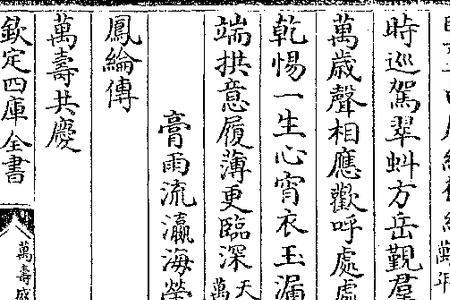 時巡駕翠虬方岳覲羣
萬歲聲相應歡呼處處
乾惕一生心宵衣玉漏
端拱意履薄更臨深
天
萬
膏雨流瀛海榮
鳳綸傳
萬壽共慶
欽定四庫全書
萬壽盛